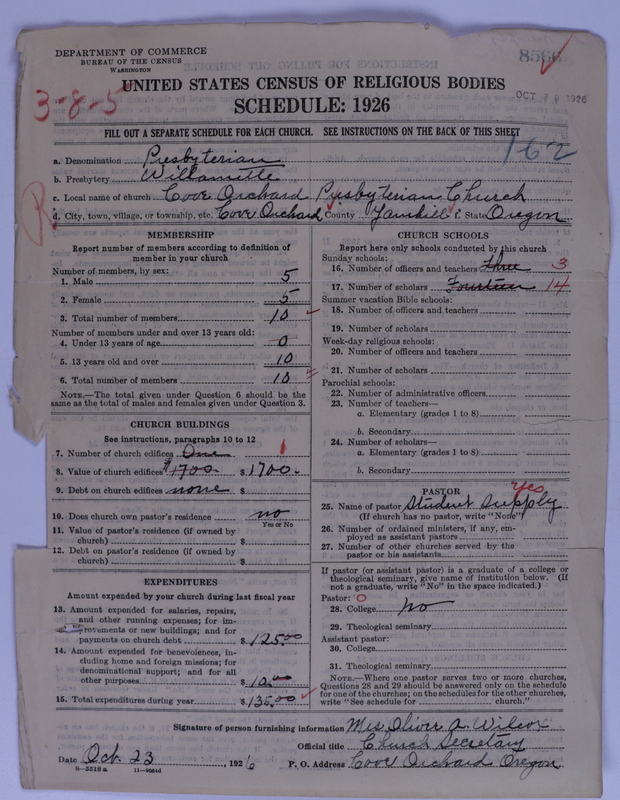 DEPARTMENT OF COMMERCE
BUREAU OF THE CENSUS
WASHINGTON
UNITED STATES CENSUS OF RELIGIOUS BODIES
SCHEDULE: 1926
3-8-5
OCT 1926
FILL OUT A SEPARATE SCHEDULE FOR EACH CHURCH. SEE INSTRUCTIONS ON THE BACK OF THIS SHEET
162
a. Denomination Presbyterian
b. Presbytery Willamette
c. Local name of church Cove Orchard Presbyterian Church
d. City, town, village, or township, etc. Cove Orchard County Yamhill State Oregon
MEMBERSHIP
Report number of members according to definition of
member in your church
Number of members, by sex:
1. Male 5
2. Female 5
3. Total number of members 10
Number of members under and over 13 years old:
4. Under 13 years of age 0
5. 13 years old and over 10
6. Total number of members 10
NOTE.—The total given under Question 6 should be
the same as the total of males and females given under Question 3.
CHURCH BUILDINGS
See instructions, paragraphs 10 to 12
7. Number of church edifices One 1
8. Value of church edifices $1700. $ 1700.
9. Debt on church edifices none $
10. Does church own pastor's residence no
Yes or No
11. Value of pastor's residence (if owned by
church) $
12. Debt on pastor's residence (if owned by
church) $
EXPENDITURES
Amount expended by your church during last fiscal year
13. Amount expended for salaries, repairs,
and other running expenses; for im-
provements or new buildings; and for
payments on church debt $ 125.00
14. Amount expended for benevolences, in-
cluding home and foreign missions; for
denominational support; and for all
other purposes $ 10.00
15. Total expenditures during year $ 135.00
CHURCH SCHOOLS
Report here only schools conducted by this church
Sunday schools:
16. Number of officers and teachers Three 3
17. Number of scholars Fourteen 14
Summer vacation Bible schools:
18. Number of officers and teachers
19. Number of scholars
Week-day religious schools:
20. Number of officers and teachers
21. Number of scholars
Parochial schools:
22. Number of administrative officers
23. Number of teachers—
a. Elementary (grades 1 to 8)
b. Secondary
24. Number of scholars—
a. Elementary (grades 1 to 8)
b. Secondary
PASTOR
Yes
25. Name of pastor Student Supply
(If church has no pastor, write "None")
26. Number of ordained ministers, if any, em-
ployed as assistant pastors
27. Number of other churches served by the
pastor or his assistants
If pastor (or assistant pastor) is a graduate of a college or
theological seminary, give name of institution below. (If
not a graduate, write "No" in the space indicated.)
Pastor: 0
28. College no
29. Theological seminary
Assistant pastor:
30. College
31. Theological seminary
NOTE.—Where one pastor serves two or more churches,
Questions 28 and 29 should be answered only on the schedule
for one of the churches; on the schedules for the other churches,
write "See schedule for church."
Signature of person furnishing information Mrs Oliver A. Wilcox
Official title Church Secretary
Date Oct. 23, 1926 P. O. Address Cove Orchard Oregon
8-5518a